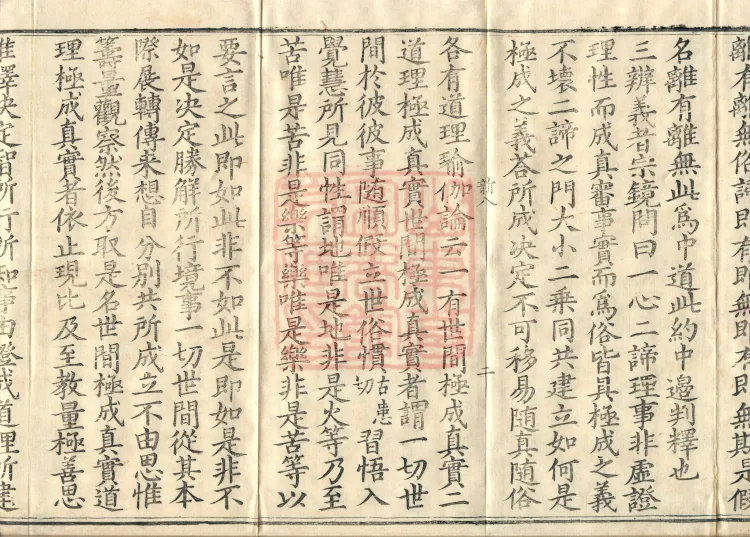 離有離無俗諦即有即無即有即無其是假
名離有離無此爲中道此約中邊判釋也
三辨義者宗鏡問曰一心二諦理事非虛證
理性而成真審事實而爲俗皆具極成之義
不壞二諦之門大小二乗同共建立如何是
極成之義荅所成決定不可移易随真随俗
二
各有道理瑜伽論云一有世間極成真實二
道理極成真實世間極成真實者謂一切世
間於彼彼事随順假立世俗慣古患切習悟入
覺慧所見同性謂地唯是地非是火等乃至
苦唯是苦非是樂等樂唯是樂非是苦等以
要言之此即如此非不如此是即如是非不
如是决定勝解所行境事一切世間從其本
際展轉傳来想自分别共所成立不由思惟
籌量觀察然後方取是名世間極成真實道
理極成真實者依止現比及至教量極善思
惟擇决定智所行所知事由證成道理所建